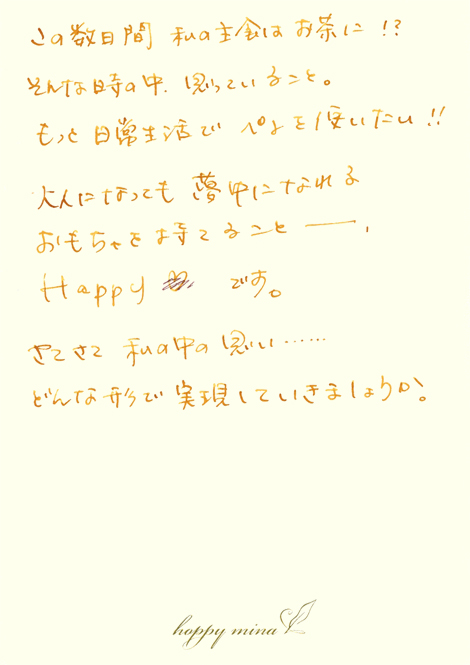 この数日間 私の主食はお茶に!?
そんな時の中、思っていること。
もっと日常生活でペンを使いたい!!
大人になっても夢中になれる
おもちゃを持てること──、
Happy です。
さてさて 私の中の思い……
どんな形で実現していきましょうか。
happy mina